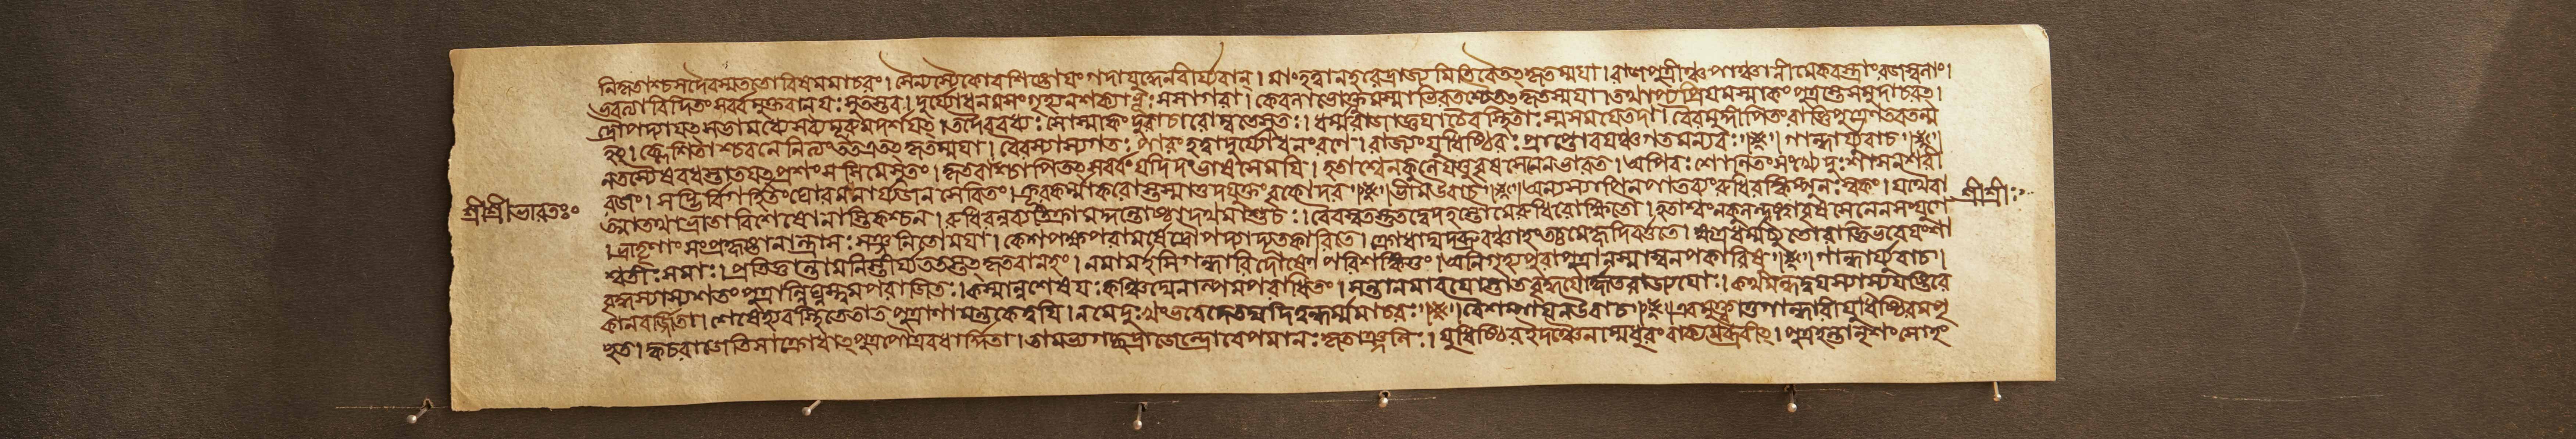 নিকৃতাশ্চসদৈবস্মততোবিষমমাচরং। সৈন্যস্যৈকোবশিষ্টোয়ংগদাযুদ্ধেনবীর্য্যবান্। মাংহত্বানহরেদ্রাজ্যমিতিবৈতৎকৃতম্ময়া। রাজপুত্রীঞ্চপাঞ্চালীমেকবস্ত্রাংরজস্বলাং।
ভবত্যাবিদিতংসর্ব্বমুক্তবান্যঃসুতস্তব। দুর্য্যোধনমসংগৃহ্যনশক্যাভূঃসসাগরা। কেবলাভোক্তুমস্মাভিরতশ্চৈতৎকৃতম্ময়া। তথাপ্যপ্রিয়মস্মাকংপুত্রস্তেসমুদাচরৎ।
দ্রৌপদ্যাযৎসভামধ্যেসব্যমূরুমদর্শয়ৎ। তদৈববধ্যঃসোস্মাকংদুরাচারোম্বতেসুতঃ। ধর্ম্মরাজাজ্ঞয়াচৈবস্থিতাঃস্মসময়েতদা। বৈরমুদ্দীপিতংরাজ্ঞিপুত্রেণতবতন্ম
হৎ। ক্লেশিতাশ্চবনেনিত্যংততএতৎকৃতম্ময়া। বৈরস্যাস্যগতঃপারংহত্বাদুর্য্যোধনংরণে। রাজ্যংযুধিষ্ঠিরঃপ্রাপ্তোবয়ঞ্চগতমন্যবঃ। গান্ধার্য্যুবাচ।
নতস্যৈষবধস্তাতযৎপ্রশংসসিমেসুতং। কৃতবাংশ্চাপিতৎসর্ব্বংযদিদংভাষসেময়ি। হতাশ্বেনকুলেযত্তুবৃষসেনেনভারত। অপিবঃশোণিতংসংখ্যেদুঃশাসনশরী
রজং। সদ্ভির্বিগর্হিতংঘোরমনার্য্যজনসেবিতং। ক্রূরকর্ম্মাকরোস্তস্মাত্তদযুক্তংবৃকোদর। ভীমউবাচ। অন্যস্যাপিনপাতব্যংরুধিরঙ্কিম্পুনঃস্বকং। যথৈবা
ত্মাতথাভ্রাতাবিশেষোনাস্তিকশ্চন। রুধিরন্নব্যতিক্রামদ্দন্তোষ্ঠাদম্বমাশুচঃ। বৈবস্বতস্তুতদ্বেদহস্তৌমেরুধিরোক্ষিতৌ। হতাশ্বংনকুলন্দৃষ্ট্বাবৃষসেনেনসংযুগে
।ভ্রাতৄণাংসংপ্রহৃষ্টানান্ত্রাসঃসঞ্জনিতোময়া। কেশপক্ষপরামর্ষেদ্রৌপদ্যাদ্যূতকারিতে। ক্রোধাদ্যদব্রুবঞ্চাহংতচ্চমেহৃদিবর্ত্ততে। ক্ষত্রধর্ম্মাচ্চ্যুতোরাজ্ঞিভবেয়ংশা
শ্বতীঃসমাঃ। প্রতিজ্ঞান্তামনিস্তীর্য্যততস্তৎকৃতবানহং। নমামর্হসিগান্ধারিদোষেণপরিশঙ্কিতুং। অনিগৃহ্যপুরাপুত্রানস্মাস্বনপকারিষু। গান্ধার্য্যুবাচ।
বৃদ্ধস্যাস্যশতংপুত্রান্নিঘ্নংস্ত্বমপরাজিতঃ। কস্মান্নশেষয়ঃকঞ্চিদ্যেনাল্পমপরাধিতং। সন্তানমাবয়োস্তাতবৃদ্ধয়োর্হৃতরাজ্যয়োঃ। কথমন্ধদ্বয়স্যাস্যযষ্টিরে
কানবর্জ্জিতা। শেষেহ্যবস্থিতেতাতপুত্রাণামন্তকেত্বয়ি। নমেদুঃখংভবেদেতদ্যদিত্বন্ধর্ম্মমাচরঃ। বৈশম্পায়নউবাচ। এবমুক্ত্বাতুগান্ধারীযুধিষ্ঠিরমপৃ
চ্ছত। ক্বচরাজেতিসাক্রোধাৎপুত্রপৌত্রবধার্দ্দিতা। তামভ্যগচ্ছদ্রাজেন্দ্রোবেপমানঃকৃতাঞ্জলিঃ। যুধিষ্ঠিরইদঞ্চৈনাম্মধুরংবাক্যমব্রবীৎ। পুত্রহন্তানৃশংসোহং
শ্রীশ্রীভারতঃ
শ্রীশ্রীঃ